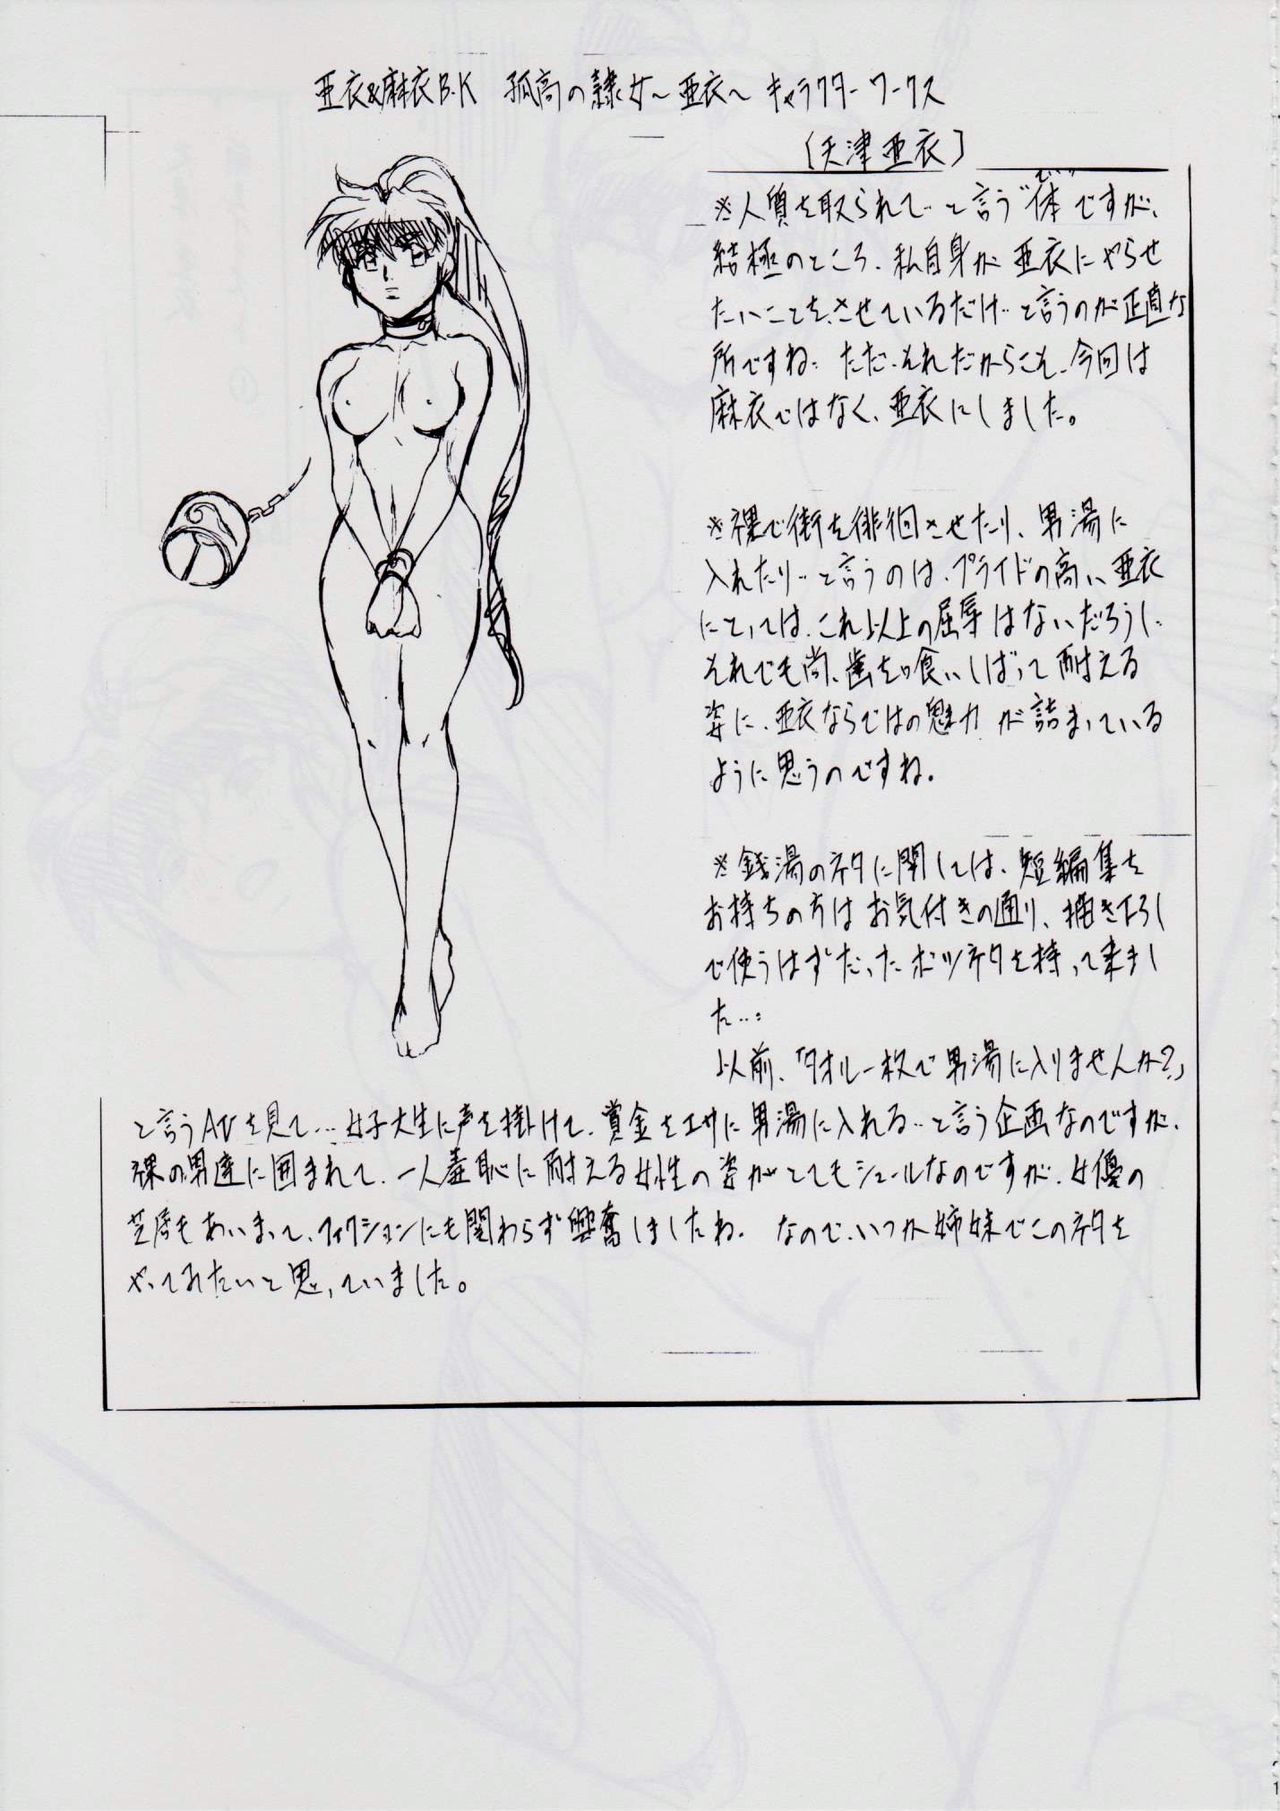 亜衣&麻衣B.K 孤高の隷女～亜衣～ キャラクターワークス
〔天津亜衣〕
※人質を取られて…と言う"体"ですが、
てい
結極のところ、私自身が亜衣にやらせ
たいことを、させているだけ…と言うのが正直な
所ですね… ただ、それだからこそ、今回は
麻衣ではなく、亜衣にしました。
※裸で街を徘徊させたり、男湯に
入れたり…と言うのは、プライドの高い亜衣
にとっては、これ以上の屈辱はないだろうに、
それでも尚、歯を喰いしばって耐える
姿に、亜衣ならではの魅力が詰まっている
ように思うのですね。
※銭湯のネタに関しては、短編集を
お持ちの方はお気付きの通り、描き下ろし
で使うはずだったボツネタを持って来まし
た…。
以前、「タオル一枚で男湯に入りませんか?」
と言うAVを見て…女子大生に声を掛けて、賞金をエサに男湯に入れる…と言う企画なのですが、
裸の男達に囲まれて、一人羞恥に耐える女性の姿がとてもシュールなのですが、女優の
芝居もあいまって、フィクションにも関わらず興奮しましたね。 なので、いつか姉妹でこのネタを
やってみたいと思っていました。